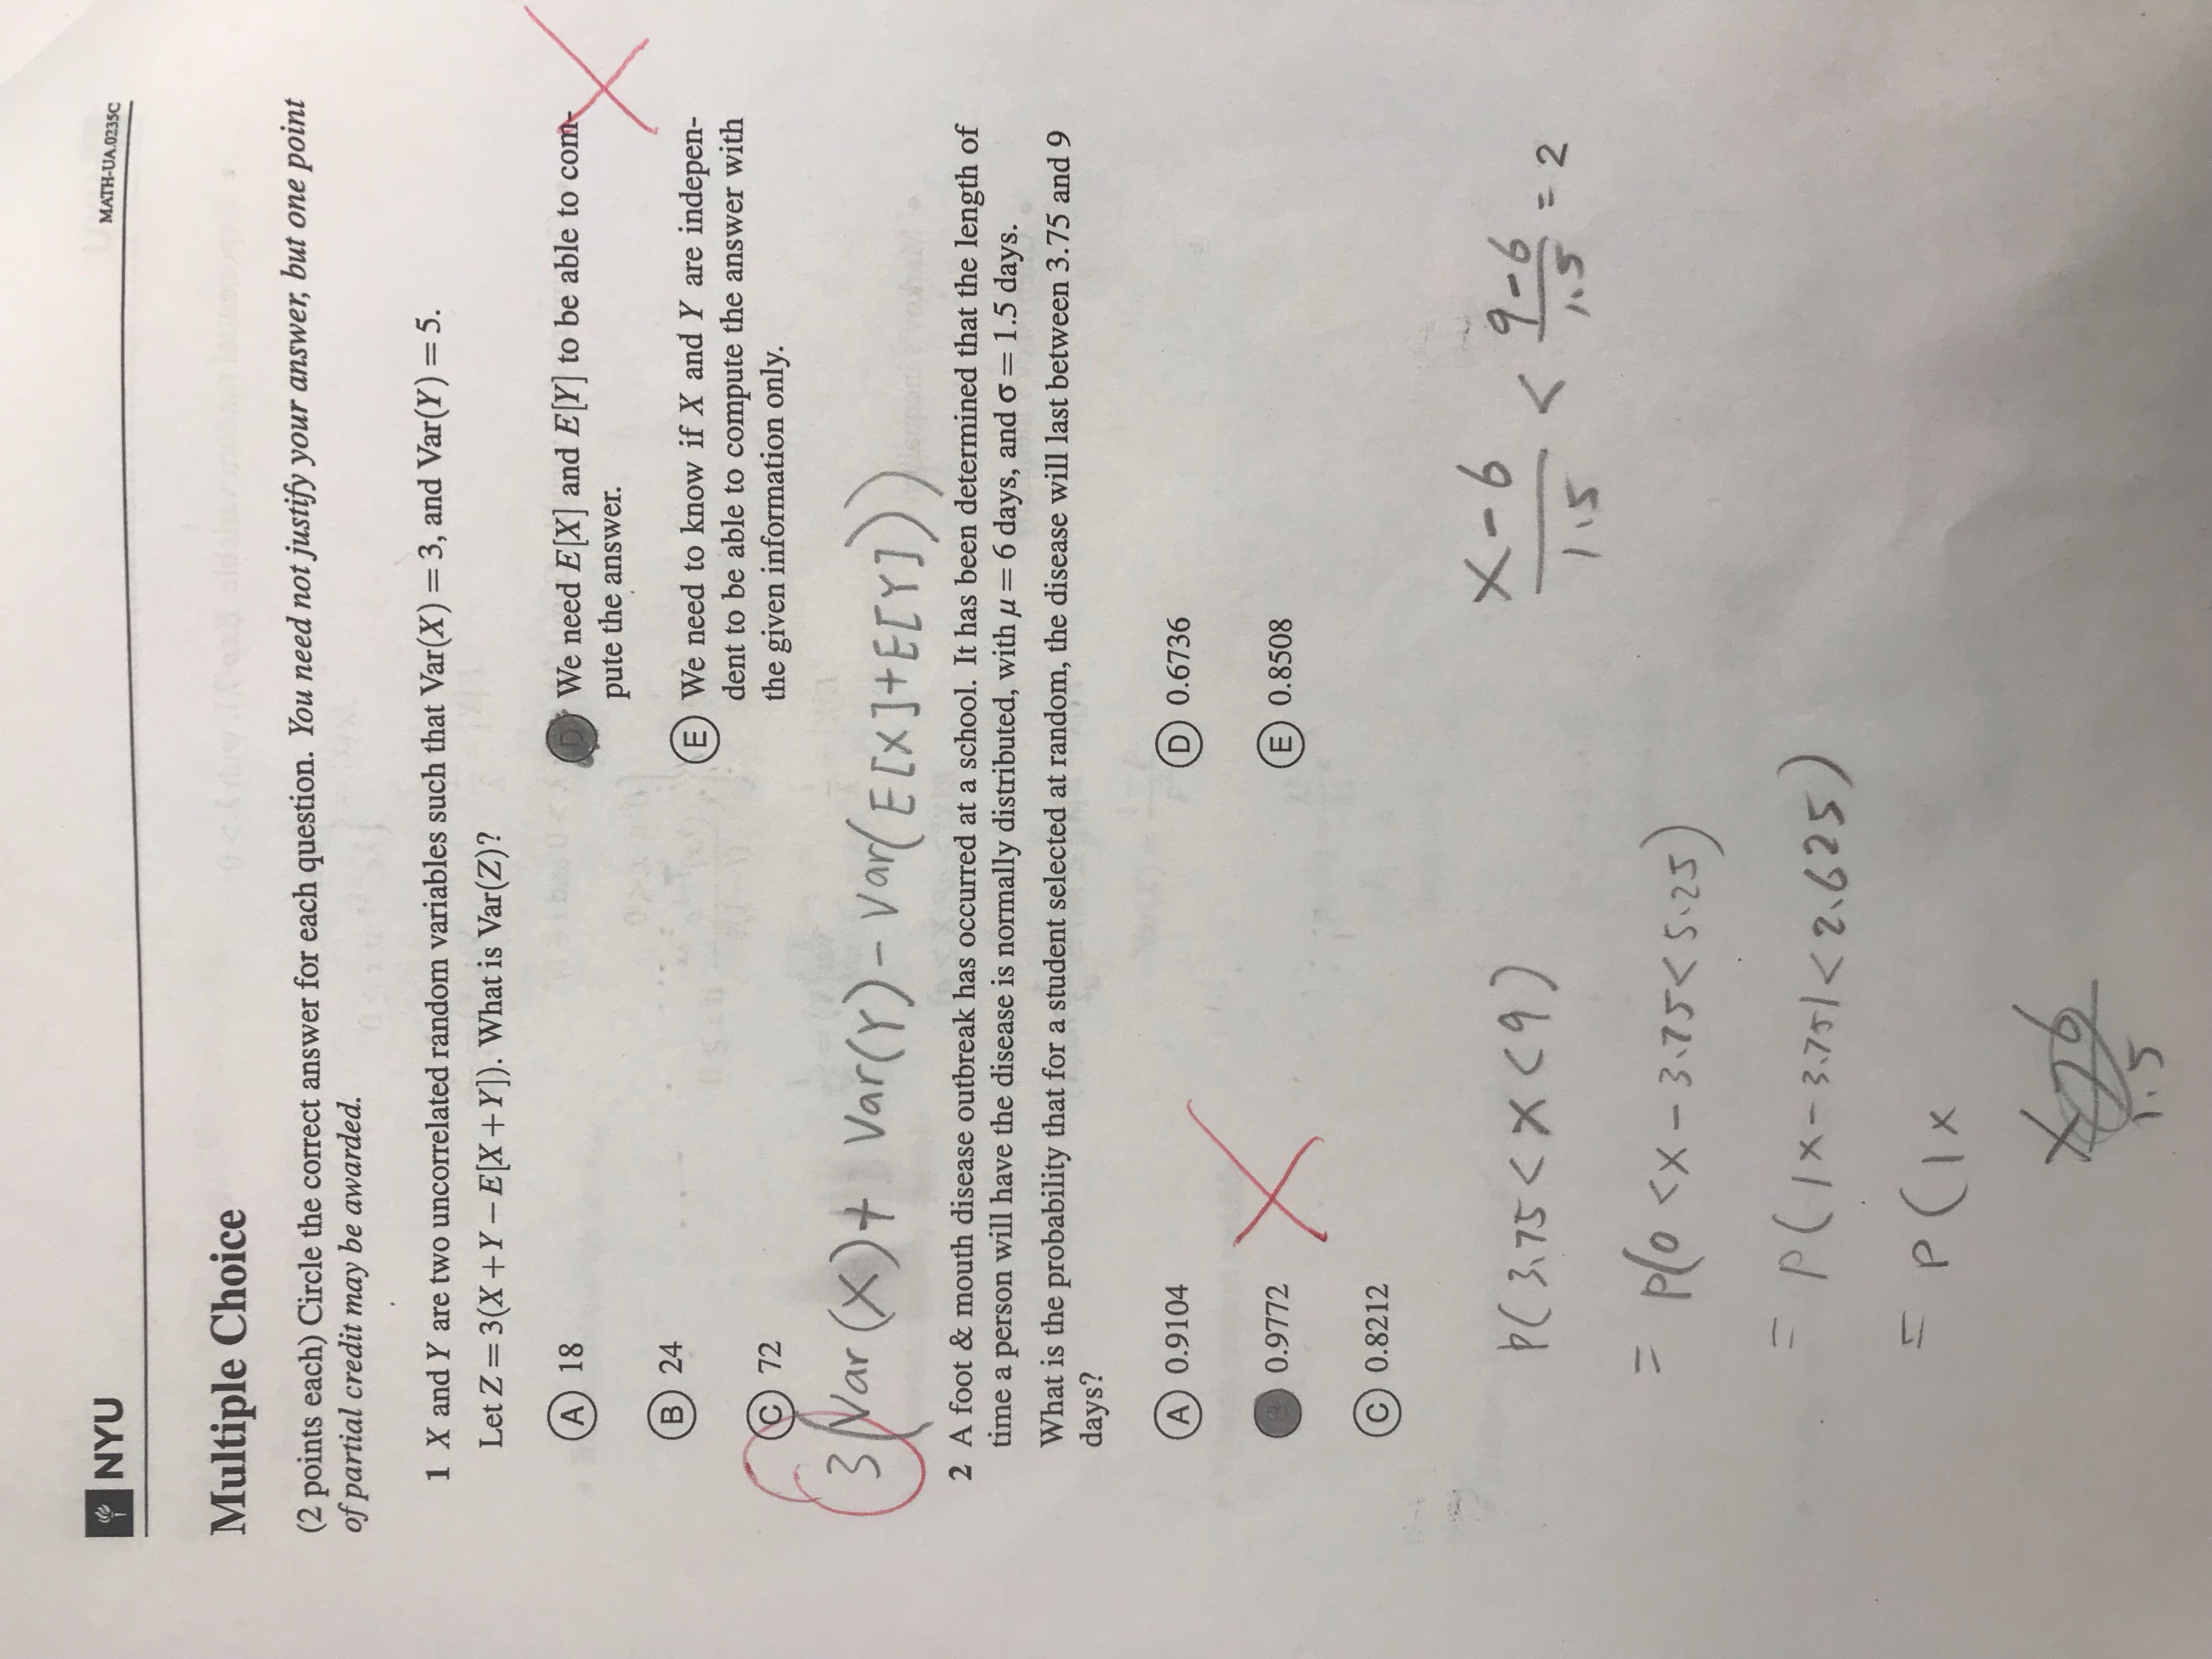 NYU
MATH-UA.0235C
Multiple Choice
(2 points each) Circle the correct answer for each question. You need not justify your answer, but one point
of partial credit may be awarded.
1 X and Y are two uncorrelated random variables such that Var(X) = 3, and Var(Y) = 5.
Let Z = 3(X + Y − E[X + Y]). What is Var(Z)?
A 18
B 24
C 72
D We need E[X] and E[Y] to be able to com-
pute the answer.
E We need to know if X and Y are indepen-
dent to be able to compute the answer with
the given information only.
3(Var(X) + Var(Y) − Var(E[X]+E[Y]))
2 A foot & mouth disease outbreak has occurred at a school. It has been determined that the length of
time a person will have the disease is normally distributed, with μ = 6 days, and σ = 1.5 days.
What is the probability that for a student selected at random, the disease will last between 3.75 and 9
days?
A 0.9104
B 0.9772
C 0.8212
D 0.6736
E 0.8508
P(3.75 < X < 9)
= P(0 < X − 3.75 < 5.25)
= P(|X − 3.75| < 2.625)
= P(|X
X − 6
1.5
X − 6 < 9 − 6 = 2
1.5 1.5